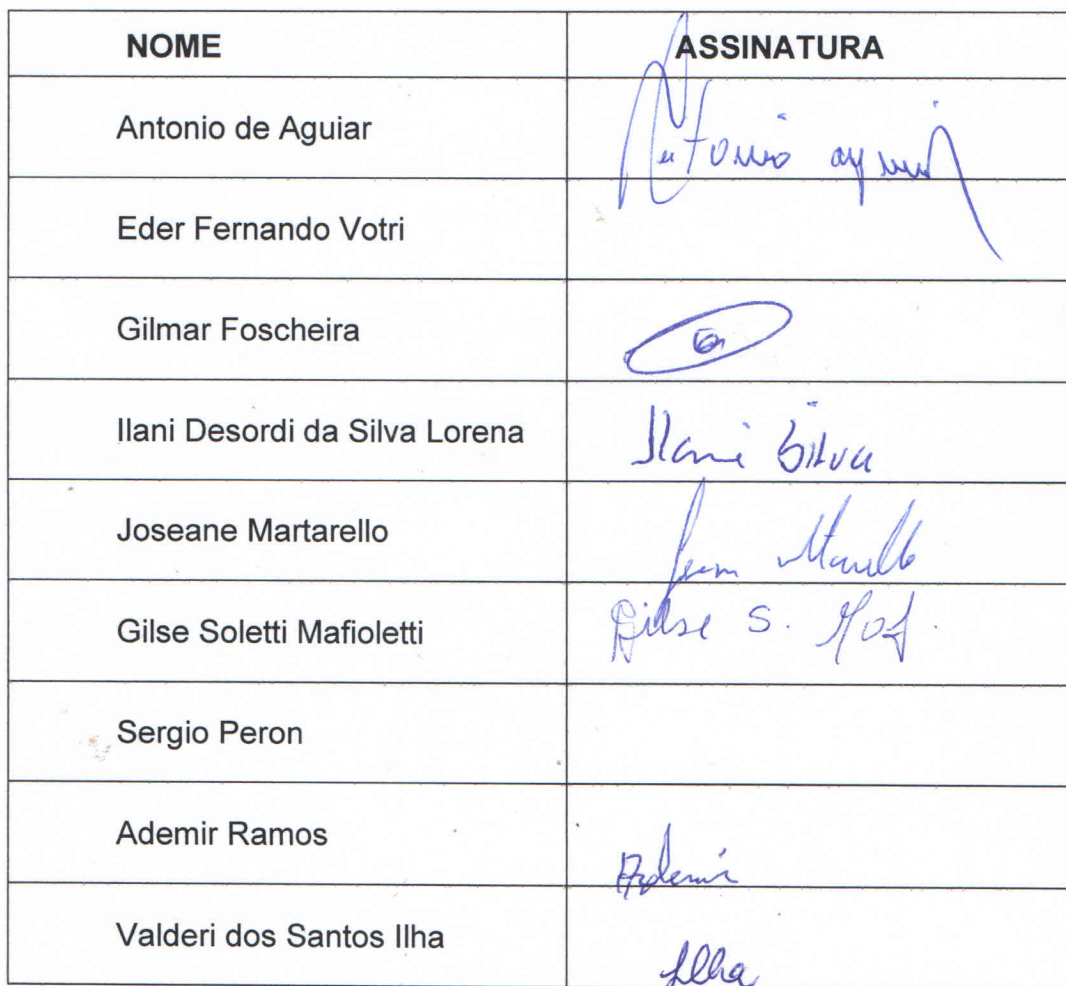 NOME ASSINATURA
Antonio de Aguiar Antonio
Eder Fernando Votri
Gilmar Foscheira
Ilani Desordi da Silva Lorena Ilani Silva
Joseane Martarello
Gilse Soletti Mafioletti Gilse S. Maf.
Sergio Peron
Ademir Ramos Ademir
Valderi dos Santos Ilha Ilha